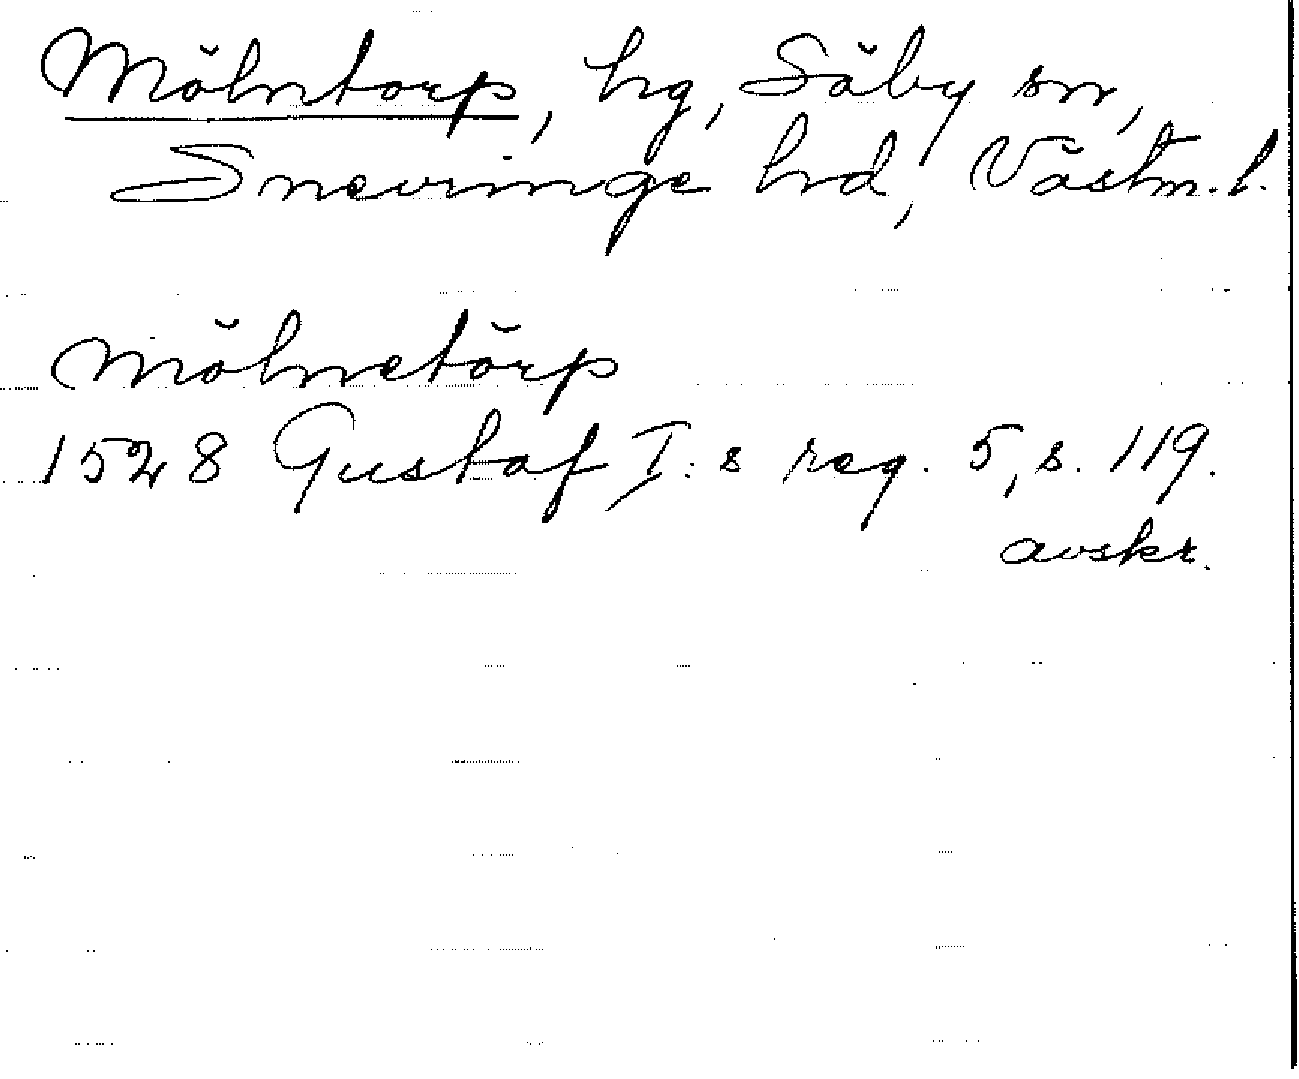 Mölntorp, hg, Säby sn,
Snevringe hrd, Västm. l.
Mölnetörp
1528 Gustaf I:s reg. 5, s. 119.
avskr.